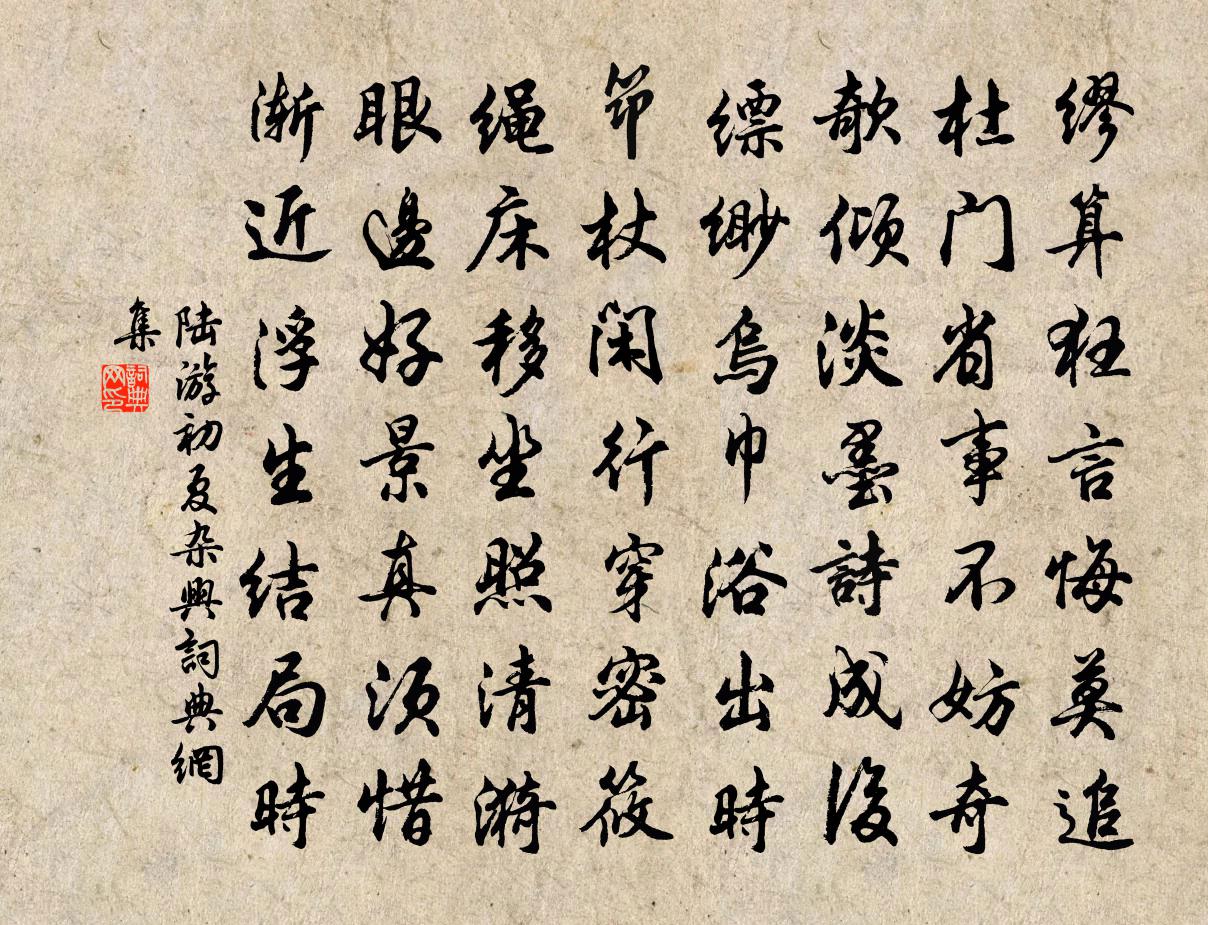 缪算狂言悔莫追
杜门省事不妨奇
欹倾淡墨詩成後
缥缈烏巾浴出時
笻杖闲行穿密筱
绳床移坐照清漪
眼邊好景真须惜
渐近浮生结局時
陆游初夏杂興詞典網
集
詞典
网印